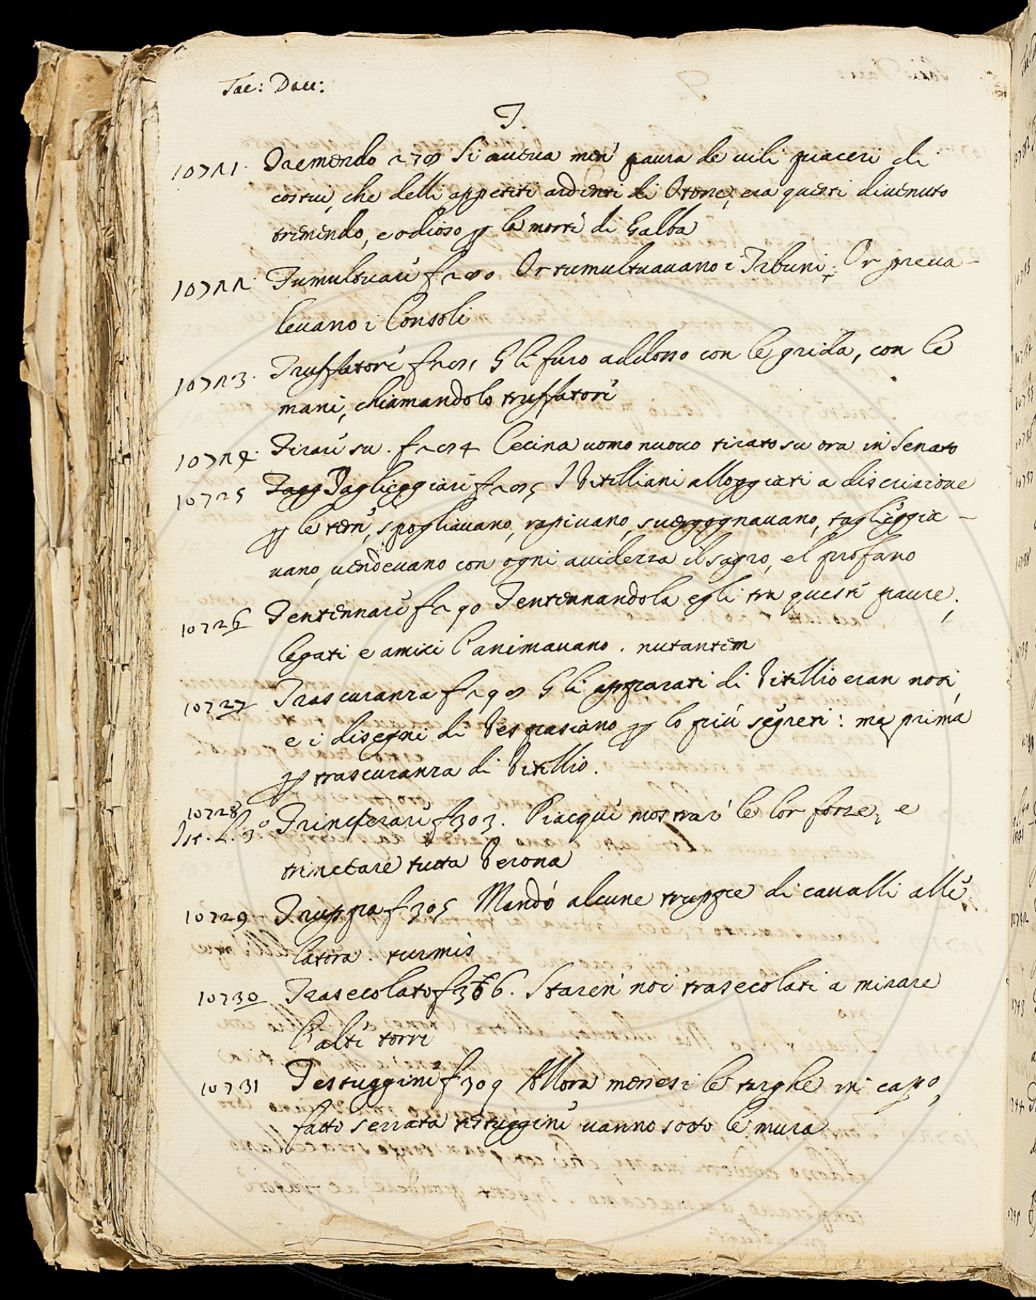 Tac: Dav:
T.
10721. Tremendo 278 Si aveva men' paura de vili piaceri di
costui, che delli appetiti ardenti di Otone; era questi divenuto
tremendo, e odioso p la morte di Galba
10722. Tumultuare f 280. Or tumultuavano i Tribuni; Or preva-
levano i Consoli
10723. Truffatore f Gli furo addosso con le grida, con le
mani, chiamandolo truffatore
10724. Tirare su. f Cecina uomo nuovo tirato su ora in Senato
10725 Taglieggiare f I Vitelliani alloggiati a discrizione
p le terre, spogliavano, rapivano, svergognavano, taglieggia-
vano, vendevano con ogni avidezza il sagro, e'l profano
10726 Tentennare f 290 Tentennandola egli tra queste paure;
legati e amici l'animavano. nutantem
10727 Trascuranza f Gli apparati di Vitellio eran noti,
e i disegni di Vespasiano p lo più segreti: ma prima
p trascuranza di Vitellio.
10728
Ist. L. 3° Trincierare f 303. Piacque mostrare le lor forze, e
trinciare tutta Verona
10729 Truppa f 305 Mandò alcune truppe di cavalli alle
latora. turmis
10730 Trasecolato f 306. Staren' noi trasecolati a mirare
l'alte torri
10731 Testuggine f 309 Allora messesi le targhe in capo,
fatto serrata testuggine vanno sotto le mura